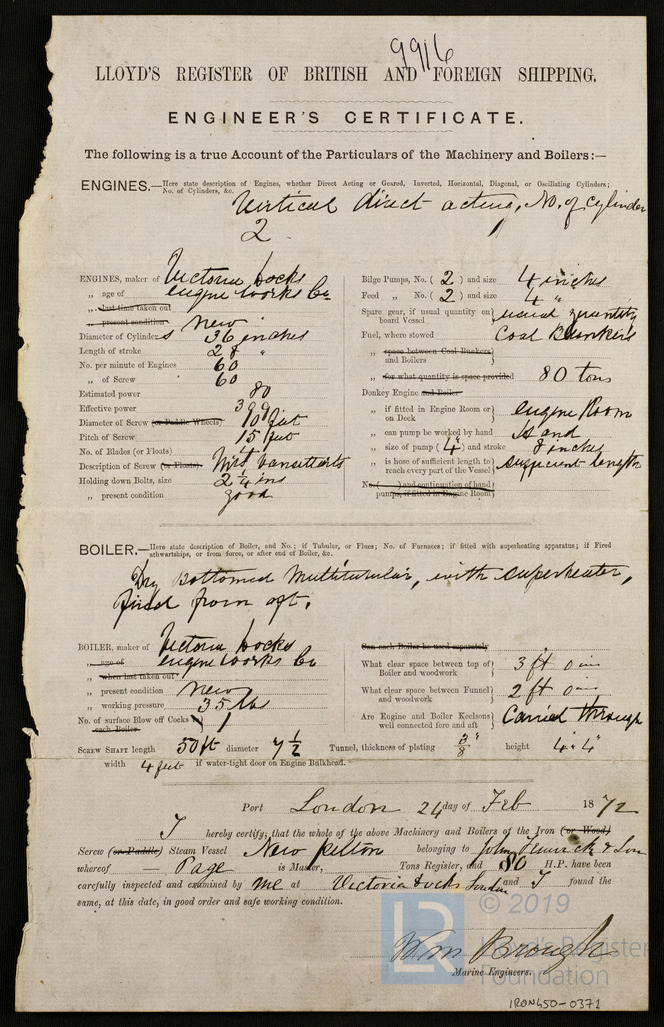 9916
LLOYD'S REGISTER OF BRITISH AND FOREIGN SHIPPING.
ENGINEER'S CERTIFICATE.
The following is a true Account of the Particulars of the Machinery and Boilers:—
ENGINES.—Here state description of Engines, whether Direct Acting or Geared, Inverted, Horizontal, Diagonal, or Oscillating Cylinders;
No. of Cylinders, &c.
Vertical direct acting, No. of Cylinder
2
ENGINES, maker of Victoria Docks
„ age of engine works Co
„ last time taken out
„ present condition New
Diameter of Cylinders 36 inches
Length of stroke 28 "
No. per minute of Engines 60
„ of Screw 60
Estimated power 80
Effective power 399
Diameter of Screw (or Paddle Wheels) 10 feet
Pitch of Screw 15 feet
No. of Blades (or Floats)
Description of Screw (or Floats)
Holding down Bolts, size 2 1/4 ins
„ present condition good
Bilge Pumps, No. ( 2 ) and size 4 inches
Feed „ No. ( 2 ) and size 4 "
Spare gear, if usual quantity on board Vessel } usual quantity
Fuel, where stowed Coal Bunkers
„ space between Coal Bunkers and Boilers }
„ for what quantity is space provided 80 tons
Donkey Engine and Boiler
„ if fitted in Engine Room or on Deck } engine Room
„ can pump be worked by hand
„ size of pump ( 4" ) and stroke 8 inches
„ is hose of sufficient length to reach every part of the Vessel } sufficient length
No. ( ) and continuation of hand pumps, if fitted in Engine Room }
BOILER.—Here state description of Boiler, and No.; if Tubular, or Flues; No. of Furnaces; if fitted with superheating apparatus; if Fired
athwartships, or from fore, or after end of Boiler, &c.
Dry Bottomed Multitubular, with superheater,
fired from aft.
BOILER, maker of Victoria Docks
„ age of engine works Co
„ when last taken out
„ present condition New
„ working pressure 35 lbs
No. of surface Blow off Cocks each Boiler } 1
Can each Boiler be used separately
What clear space between top of Boiler and woodwork } 3 ft 0 ins
What clear space between Funnel and woodwork } 2 ft 0 ins
Are Engine and Boiler Keelsons well connected fore and aft } Carried through
SCREW SHAFT length 50 ft diameter 7 1/2 Tunnel, thickness of plating 3/8" height 4. 4"
width 4 feet if water-tight door on Engine Bulkhead.
Port London 24 day of Feb 1872
I hereby certify; that the whole of the above Machinery and Boilers of the Iron (or Wood)
Screw (or Paddle) Steam Vessel New Pelton belonging to John Fenwick & Son
whereof — Page is Master, Tons Register, and 80 H.P. have been
carefully inspected and examined by me at Victoria Docks London and I found the
same, at this date, in good order and safe working condition.
Wm Brough
Marine Engineers.
LR © 2019
Lloyd's Register
Foundation
IRON450-0371